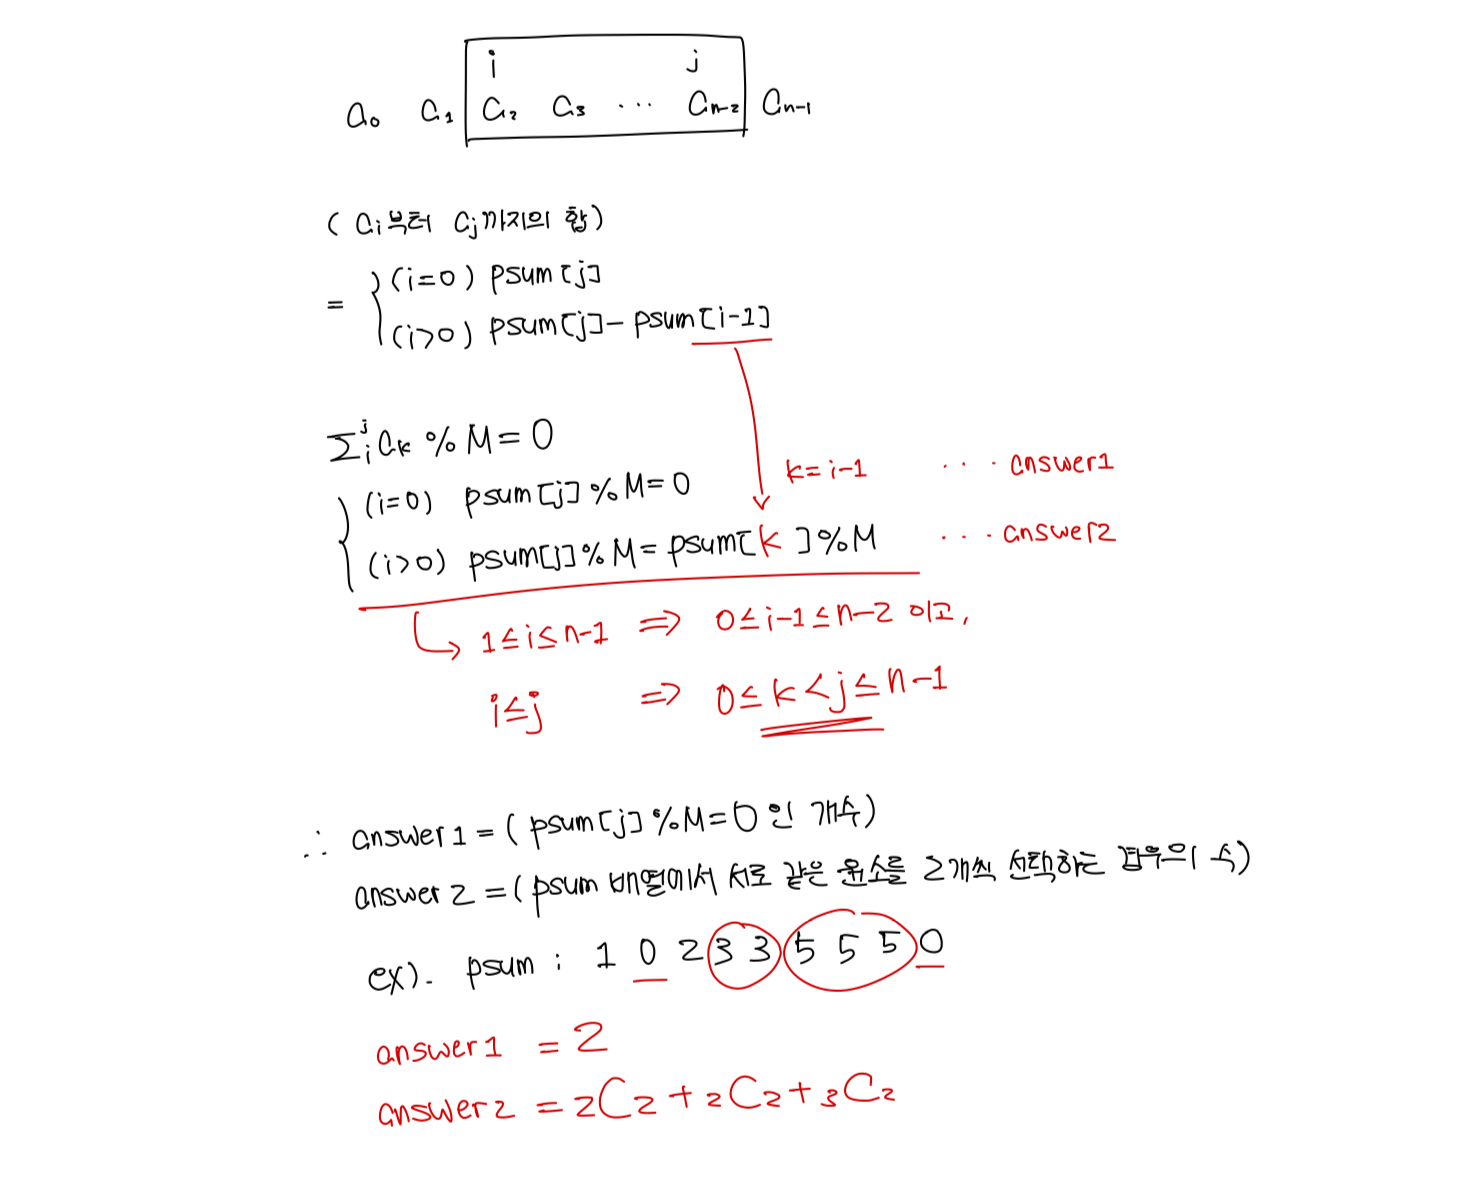 i j
a₀ a₁ a₂ a₃ ... aₙ₋₂ aₙ₋₁
( aᵢ부터 aⱼ까지의 합)
= { (i=0) psum[j]
(i>0) psum[j] - psum[i-1]
Σᵢʲ aₖ % M = 0
k = i-1 ... answer1
(i=0) psum[j] % M = 0
(i>0) psum[j] % M = psum[k] % M ... answer2
1≤i≤n-1 ⇒ 0≤i-1≤n-2 이고,
i≤j ⇒ 0≤k<j≤n-1
∴ answer1 = ( psum[j] % M = 0 인 개수)
answer 2 = ( psum 배열에서 서로 같은 원소를 2개씩 선택하는 경우의 수)
ex). psum : 1 0 2 3 3 5 5 5 0
answer1 = 2
answer2 = ₂C₂ + ₂C₂ + ₃C₂